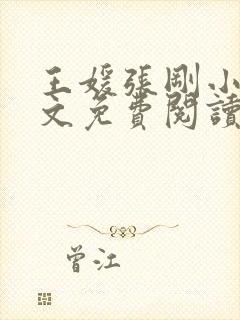 王媛張剛小
文免費閱讀
曾江